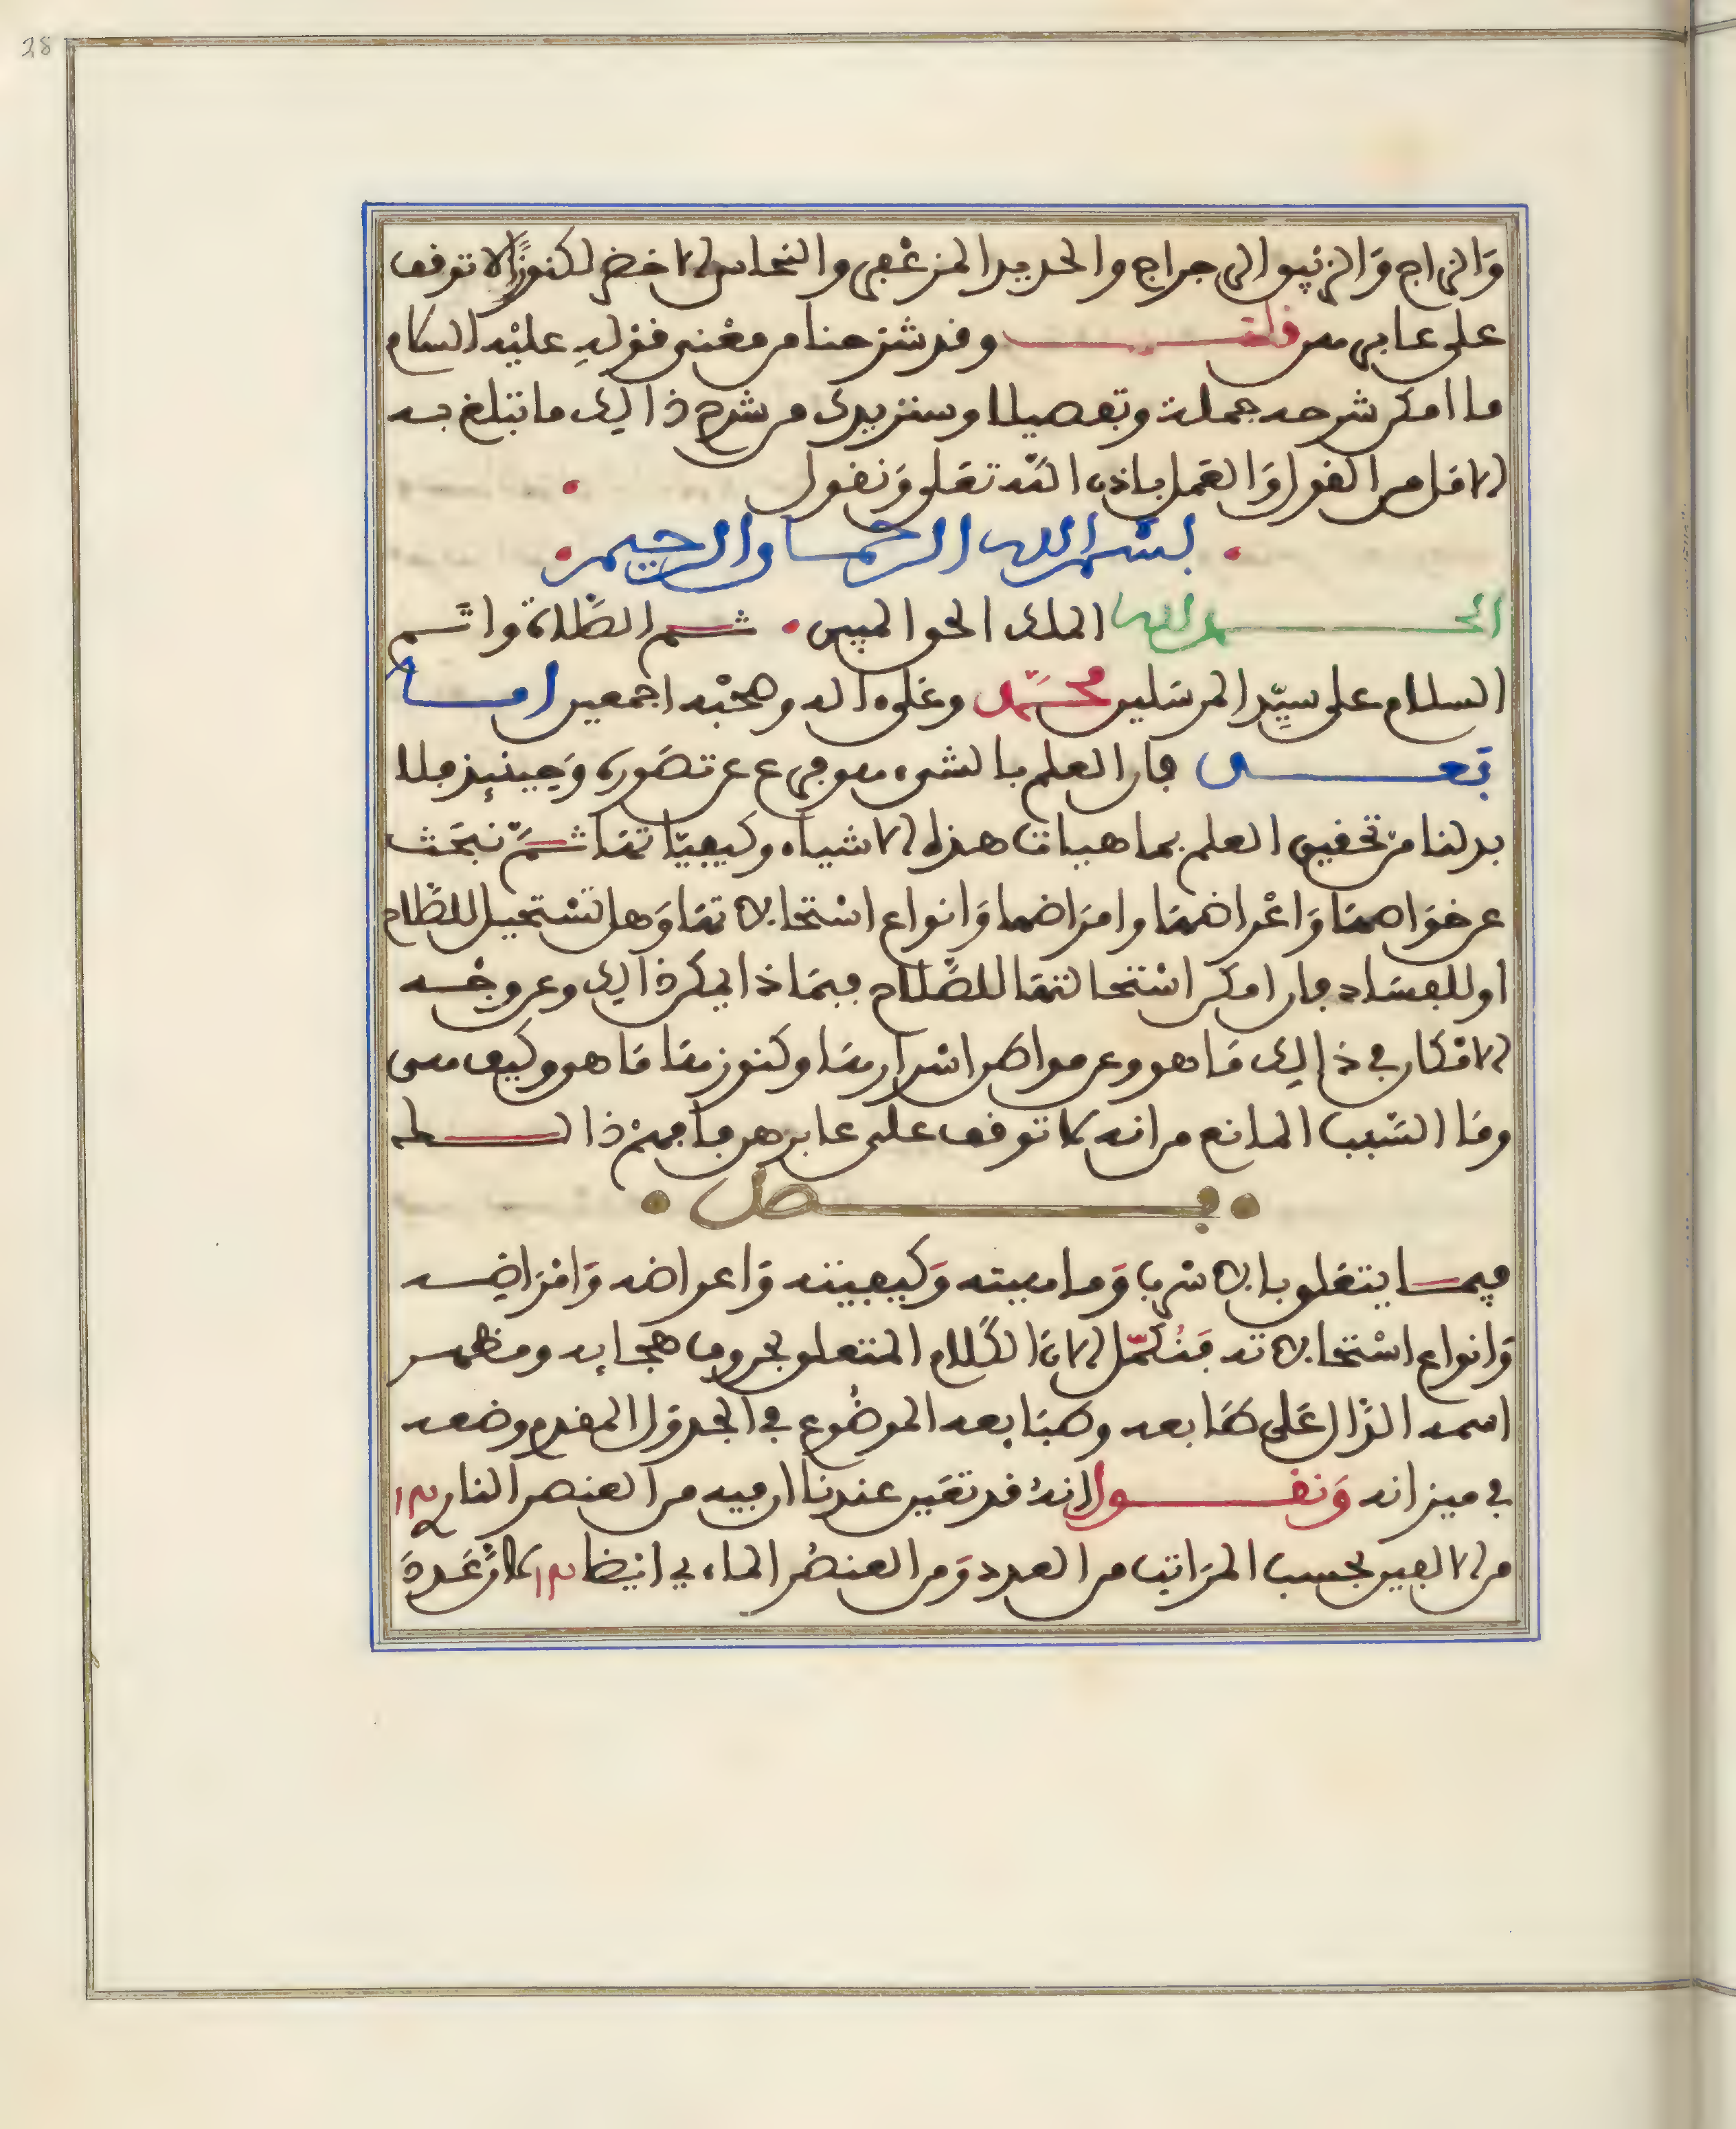 38
وَالزاج وَالزئبق الرجراج والحديد المزعفر والنحاس الاخضر لكنوزًا لا توقف
على عابرهن قلت وقد شرحنا من معنى قوله عليْه السلام
ما امكن شرحه جملة وتفصيلا وسنزيدك من شرح ذالك ما تبلغ به
الامل من القول وَالعَمل باذن الله تعَلى وَنقول
بسم الله الرحمان الرحيم
الحمد لله الملك الحق المبين ثم الصَّلاة واتَم
السلام على سيِّد المرسَلين محمَّد وعَلى ءاله وصحْبه اجمعين اما
بَعد فان العلم بالشيء هو فرع عن تصَوره وَحِينئِذ فلا
بد لنا من تحقيق العلم بماهيات هذه الاشياء وكيفيّاتهَا ثمَّ نبحَث
عن خوَاصهَا وَاعْراضهَا وامرَاضها وَانواع اسْتحالاتهَا وَهل تسْتحيل للصَّلاح
او للفسَاد فان امكن اسْتحالتهَا للصَّلاح فبمَاذا يمكن ذالك وعن وجْه
الامْكان في ذالك مَا هو وعن مواطن اسْرارهَا وكنوزهَا مَا هو وكيف هي
ومَا السَّبب المانع من انه لا توقف على عابرهن فافهمْ ذالك
فصل
فيما يتعَلق بالاسْرب وَماهيته وَكيفيته وَاعراضه وَامْرَاضه
وَانواع اسْتحالاته فَنُكَمّل الانَ الكَلام المتعلق بحروف هجايه ومظهر
اسمه الدَّال عَلى طبَايعه وطبَايعه الموضُوع في الجدوَل المقدم وضعه
في ميزانه وَنقول انهُ قد تعَين عندنا ان فيه من العنصر الناري
من الالفين بحسب المرَاتب من العدد وَمن العنصُر الماءي ايْضا لانَّ عَدَدَ